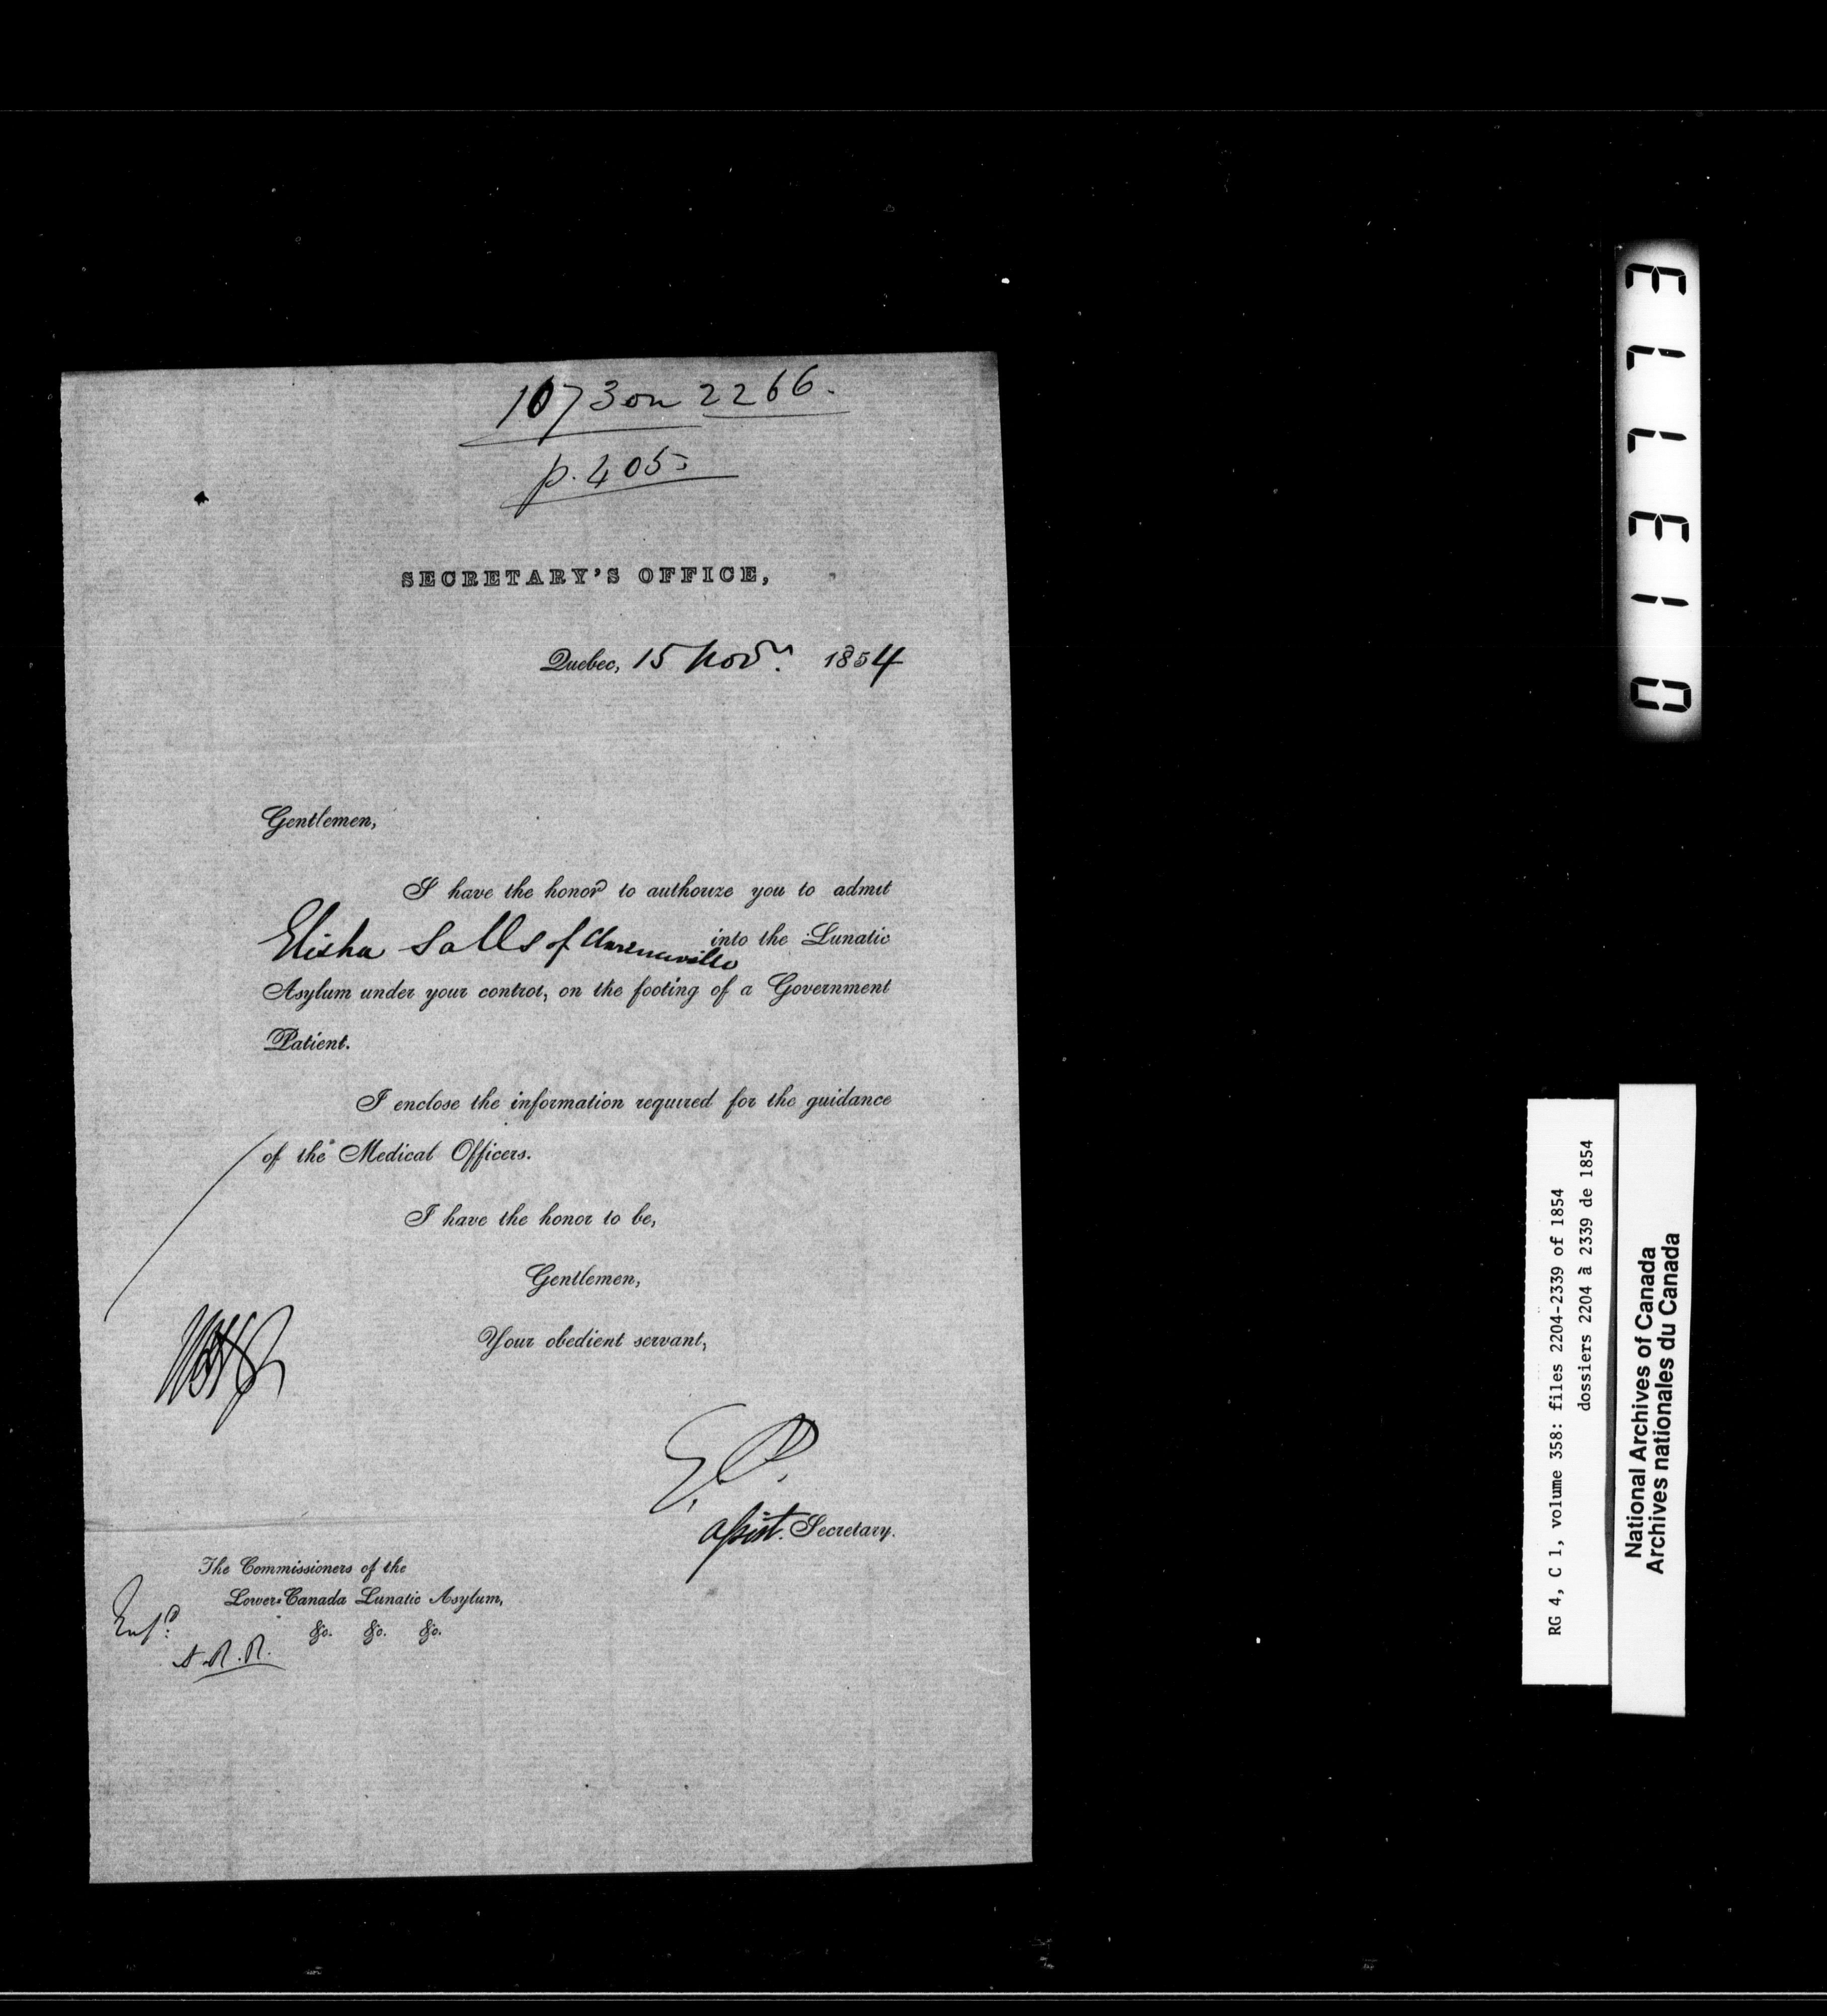 1073 on 2266.
p. 405
SECRETARY'S OFFICE,
Quebec, 15 Novr. 1854
Gentlemen,
I have the honor to authorize you to admit
Elisha Salls of Clarenceville into the Lunatic
Asylum under your control, on the footing of a Government
Patient.
I enclose the information required for the guidance
of the Medical Officers.
I have the honor to be,
Gentlemen,
Your obedient servant,
E.P.
Assist. Secretary.
The Commissioners of the
Lower-Canada Lunatic Asylum,
&c. &c. &c.
A.R.R.
013773
RG 4, C 1, volume 358: files 2204-2339 of 1854
dossiers 2204 à 2339 de 1854
National Archives of Canada
Archives nationales du Canada